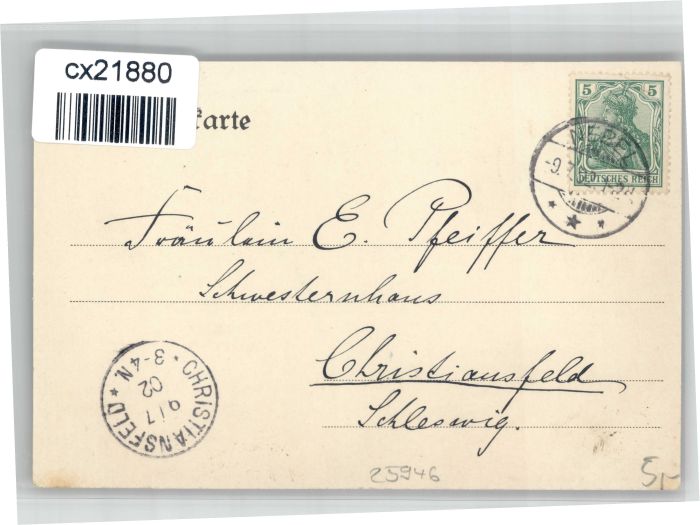 cx21880
karte
5 5
DEUTSCHES REICH
NEBEL
Fräulein E. Pfeiffer
Schwesternhaus
Christiansfeld
Schleswig.
CHRISTIANSFELD
3-4 N.
9/7
02
25946
5,-